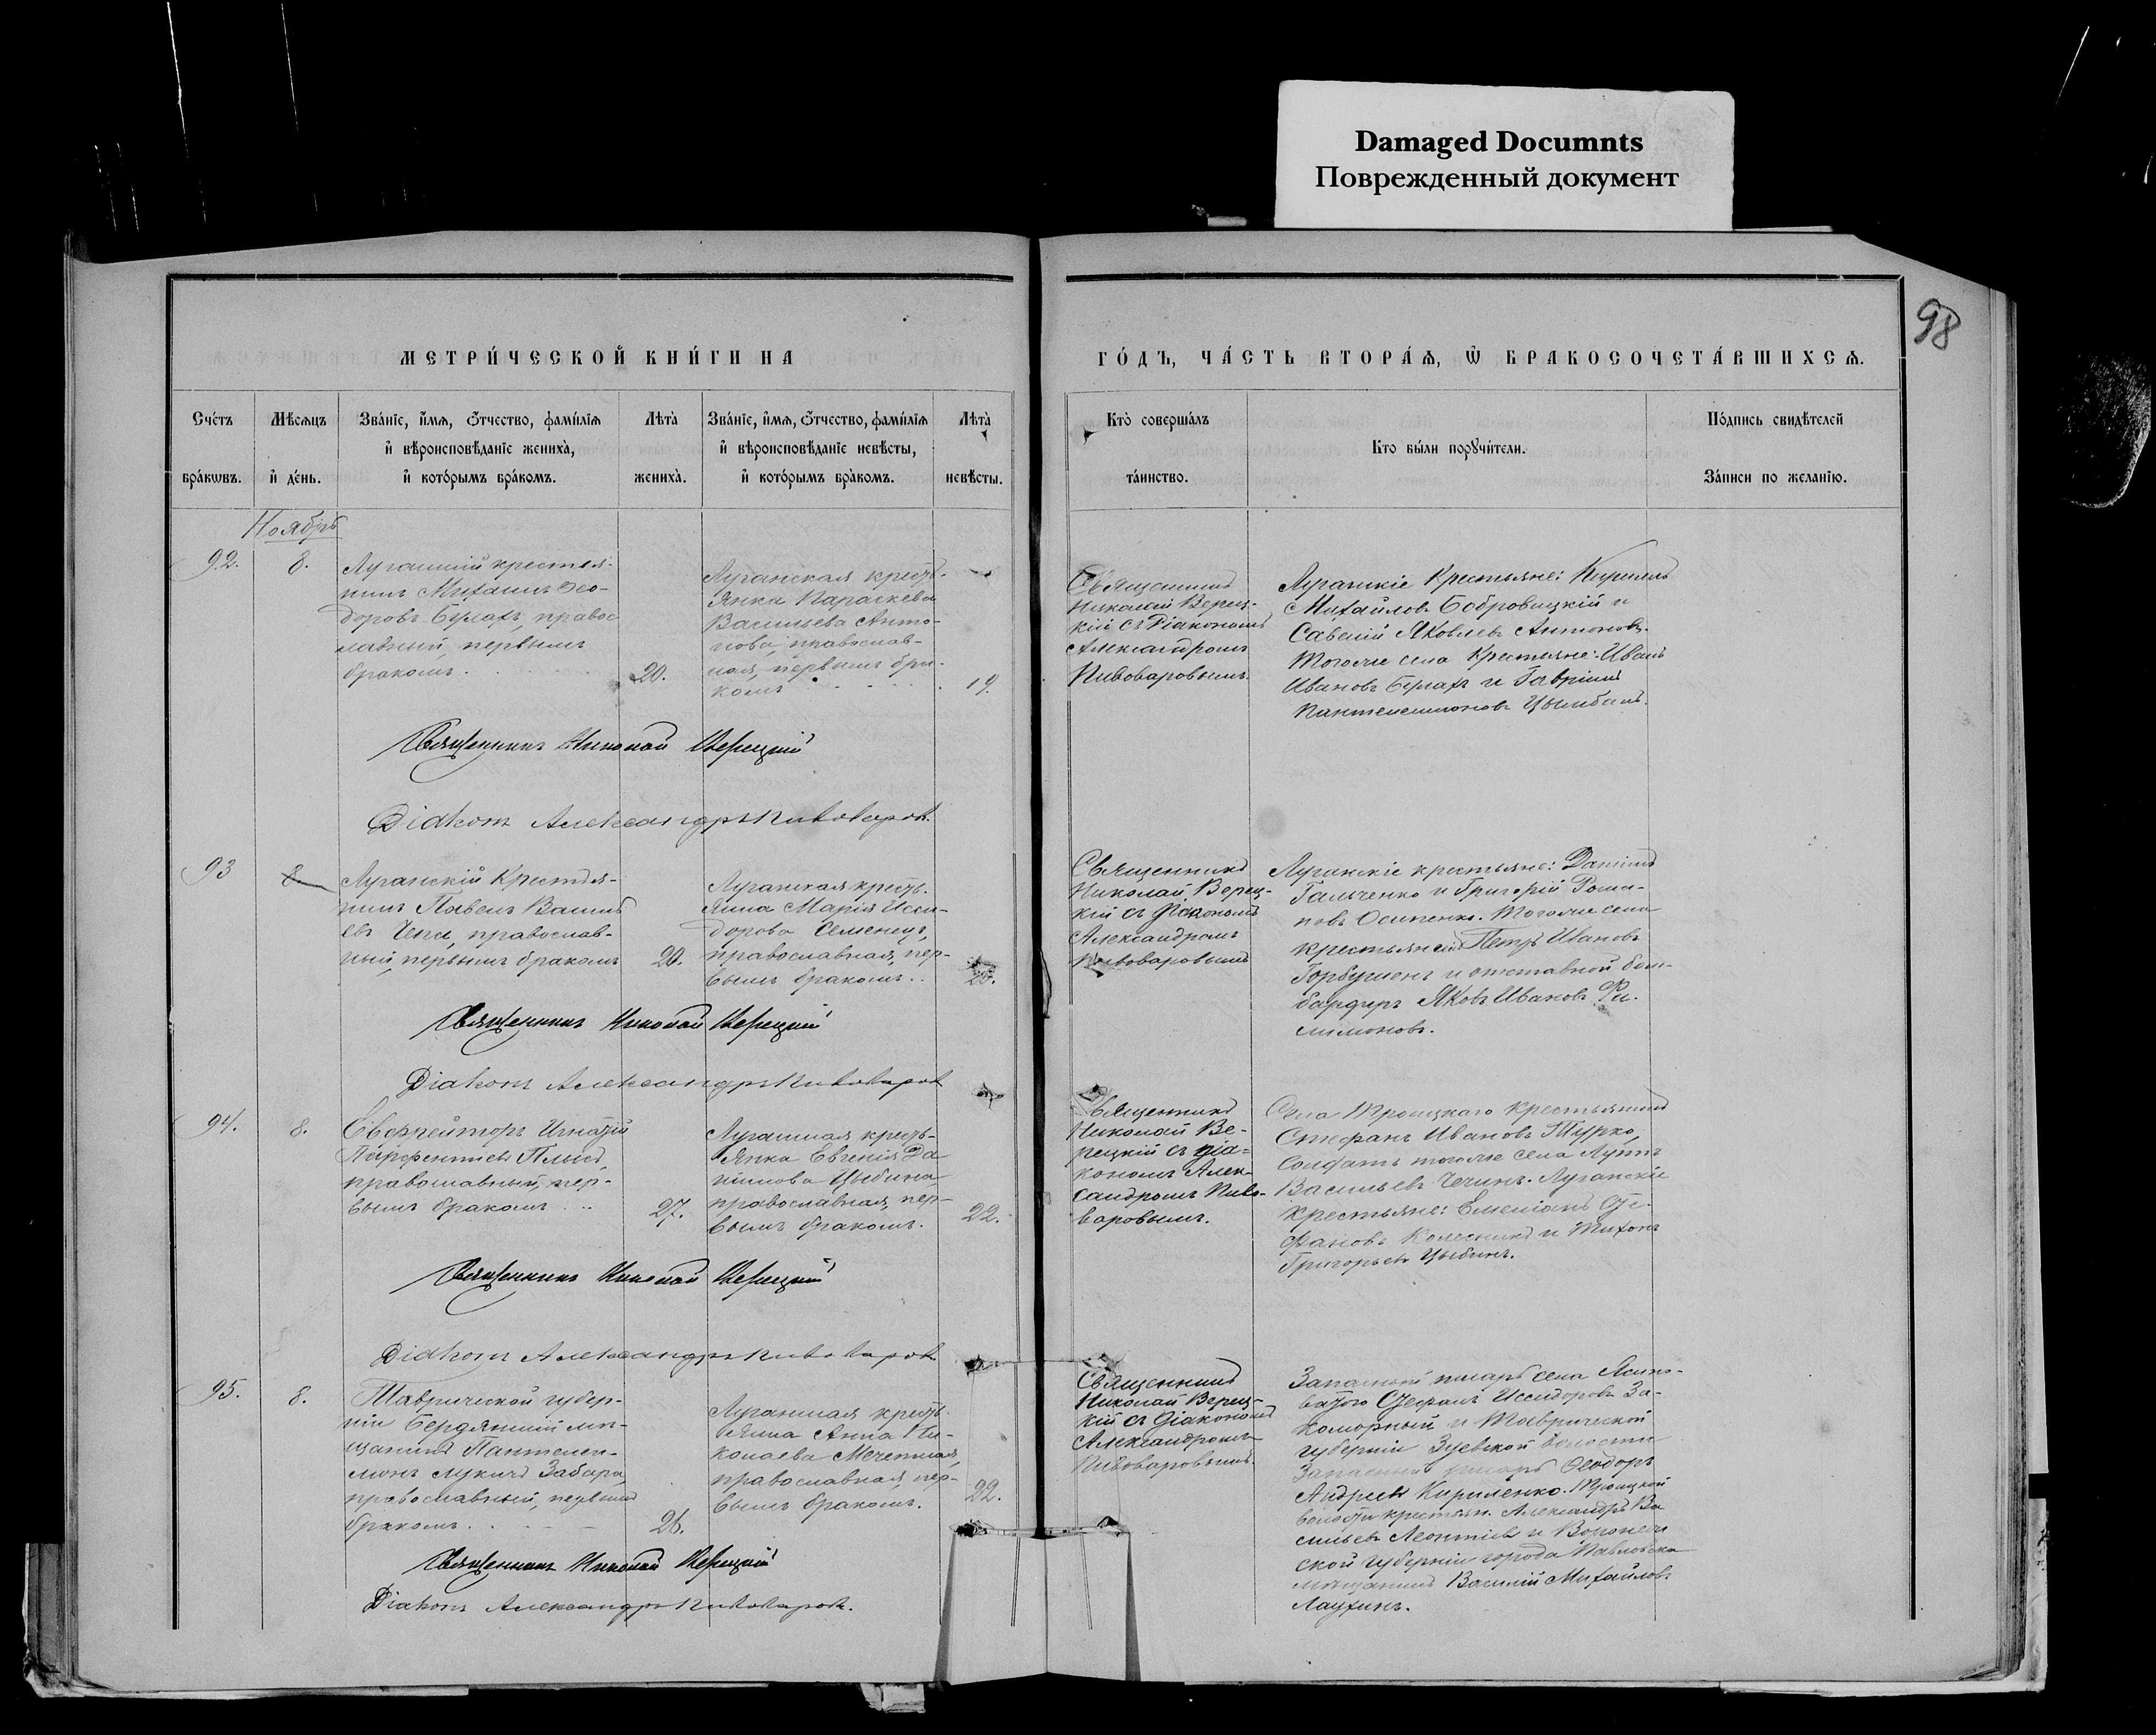 Damaged Documnts
Поврежденный документ
98
МЕТРИ́ЧЕСКОЙ КНИ́ГИ НА
ГО́ДЪ, ЧА́СТЬ ВТОРА́Ѧ, Ѿ БРАКОСОЧЕТА́ВШИХСѦ.
Сче́тъ
бра́кѡвъ.
Мѣ́сѧцъ
и҆ де́нь.
Зва́нїе, и҆́мѧ, ѻ҆́тчество, фами́лїѧ
и҆ вѣроисповѣ́данїе жениха̀,
и҆ кото́рымъ бра́комъ.
Лѣ́та
жениха̀.
Зва́нїе, и҆́мѧ, ѻ҆́тчество, фами́лїѧ
и҆ вѣроисповѣ́данїе невѣ́сты,
и҆ кото́рымъ бра́комъ.
Лѣ́та
невѣ́сты.
Кто̀ соверша́лъ
та́инство.
Кто бы́ли порꙋчи́тели.
По́дпись свидѣ́телей
За́писи по жела́нїю.
Ноябрь
92.
8.
Луганскій крестья-
нинъ Михаилъ Ѳео-
доровъ Булахъ, правос
лавный, первымъ
бракомъ.
20.
Луганская кресть-
янка Параскева
Васильева Анто-
нова, православ-
ная, первымъ бра-
комъ
19.
Священникъ
Николай Верец-
кій съ Діакономъ
Александромъ
Пивоваровымъ.
Луганскіе Крестьяне: Кириллъ
Михайловъ Бобровицкій и
Савелій Яковлевъ Антоновъ.
Тогоже села Крестьяне: Иванъ
Ивановъ Булахъ и Гавріилъ
Пантелеимоновъ Цымбалъ.
Священникъ Николай Верецкій
Діаконъ Александръ Пивоваровъ.
93
8.
Луганскій Крестья-
нинъ Павелъ Василь
евъ Чепи, православ-
ный, первымъ бракомъ
20.
Луганская кресть-
янка Марія Иси-
дорова Семенец,
православная, пер-
вымъ бракомъ..
20.
Священникъ
Николай Верец-
кій съ Діакономъ
Александромъ
Пивоваровымъ
Луганскіе крестьяне: Даніилъ
Гальченко и Григорій Рома-
новъ Осипенко. Тогоже села
крестьянинъ Петръ Ивановъ
и отставной бом-
бардиръ Яковъ Ивановъ Фи-
лимоновъ.
Священникъ Николай Верецкій
Діаконъ Александръ Пивоваровъ
94.
8.
Ефрейторъ Игнатій
Парфентіевъ
православный, пер-
вымъ бракомъ ..
27.
Луганская кресть-
янка Евгенія Да
ніилова Цыбина,
православная, пер-
вымъ бракомъ.
22.
Священникъ
Николай Ве-
рецкій съ діа-
кономъ Алек-
сандромъ Пиво-
варовымъ.
Села Троицкаго крестьянинъ
Стефанъ Ивановъ Турко,
Солдатъ тогоже села
Васильевъ Чечинъ. Луганскіе
крестьяне: Емеліанъ Сте-
фановъ Колесникъ и Тихонъ
Григорьевъ Цыбинъ.
Священникъ Николай Верецкій
Діаконъ Александръ Пивоваровъ
95.
8.
Таврической губер-
ніи Бердянскій мѣ-
щанинъ Пантелеи-
монъ Лукичъ Забара,
православный, первымъ
бракомъ.
26.
Луганская кресть-
янка Анна Ни-
колаева Мечетная,
православная, пер-
вымъ бракомъ.
22.
Священникъ
Николай Верец-
кій съ Діакономъ
Александромъ
Пивоваровымъ.
Запасный писарь села Ясино-
ватаго Стефанъ Исидоровъ За-
коморный и Таврической
губерніи Зуевской волости
Запасный писарь Ѳеодоръ
Андреевъ Кириленко. Троицкой
волости крестьян. Александръ Ва
сильевъ Леонтіевъ и Воронеж
ской губерніи города Павловска
мѣщанинъ Василій Михайловъ
Лаухинъ.
Священникъ Николай Верецкій
Діаконъ Александръ Пивоваровъ.